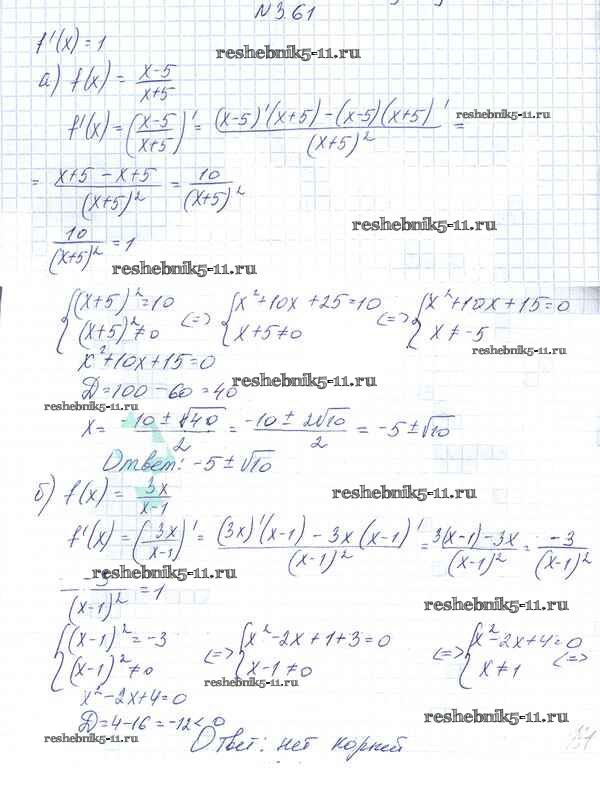 N 3.61
f'(x) = 1
reshebnik5-11.ru
а) f(x) = (x-5)/(x+5)
f'(x) = ((x-5)/(x+5))' = ((x-5)'(x+5) - (x-5)(x+5)')/(x+5)² =
reshebnik5-11.ru
= (x+5 - x+5)/(x+5)² = 10/(x+5)²
reshebnik5-11.ru
10/(x+5)² = 1
reshebnik5-11.ru
{(x+5)² = 10 <=> {x²+10x+25=10 <=> {x²+10x+15=0
(x+5)² ≠ 0 x+5≠0 x ≠ -5
reshebnik5-11.ru
x²+10x+15=0
Д=100-60=40
reshebnik5-11.ru
reshebnik5-11.ru
x = (-10 ± √40)/2 = (-10 ± 2√10)/2 = -5 ± √10
Ответ: -5 ± √10
б) f(x) = 3x/(x-1)
reshebnik5-11.ru
f'(x) = (3x/(x-1))' = ((3x)'(x-1) - 3x(x-1)')/(x-1)² = (3(x-1)-3x)/(x-1)² = -3/(x-1)²
reshebnik5-11.ru
-3/(x-1)² = 1
reshebnik5-11.ru
{(x-1)² = -3 <=> {x²-2x+1+3=0 <=> {x²-2x+4=0
(x-1)² ≠ 0 x-1≠0 x≠1 <=>
reshebnik5-11.ru
x²-2x+4=0
Д=4-16=-12<0
reshebnik5-11.ru
reshebnik5-11.ru
Ответ: нет корней